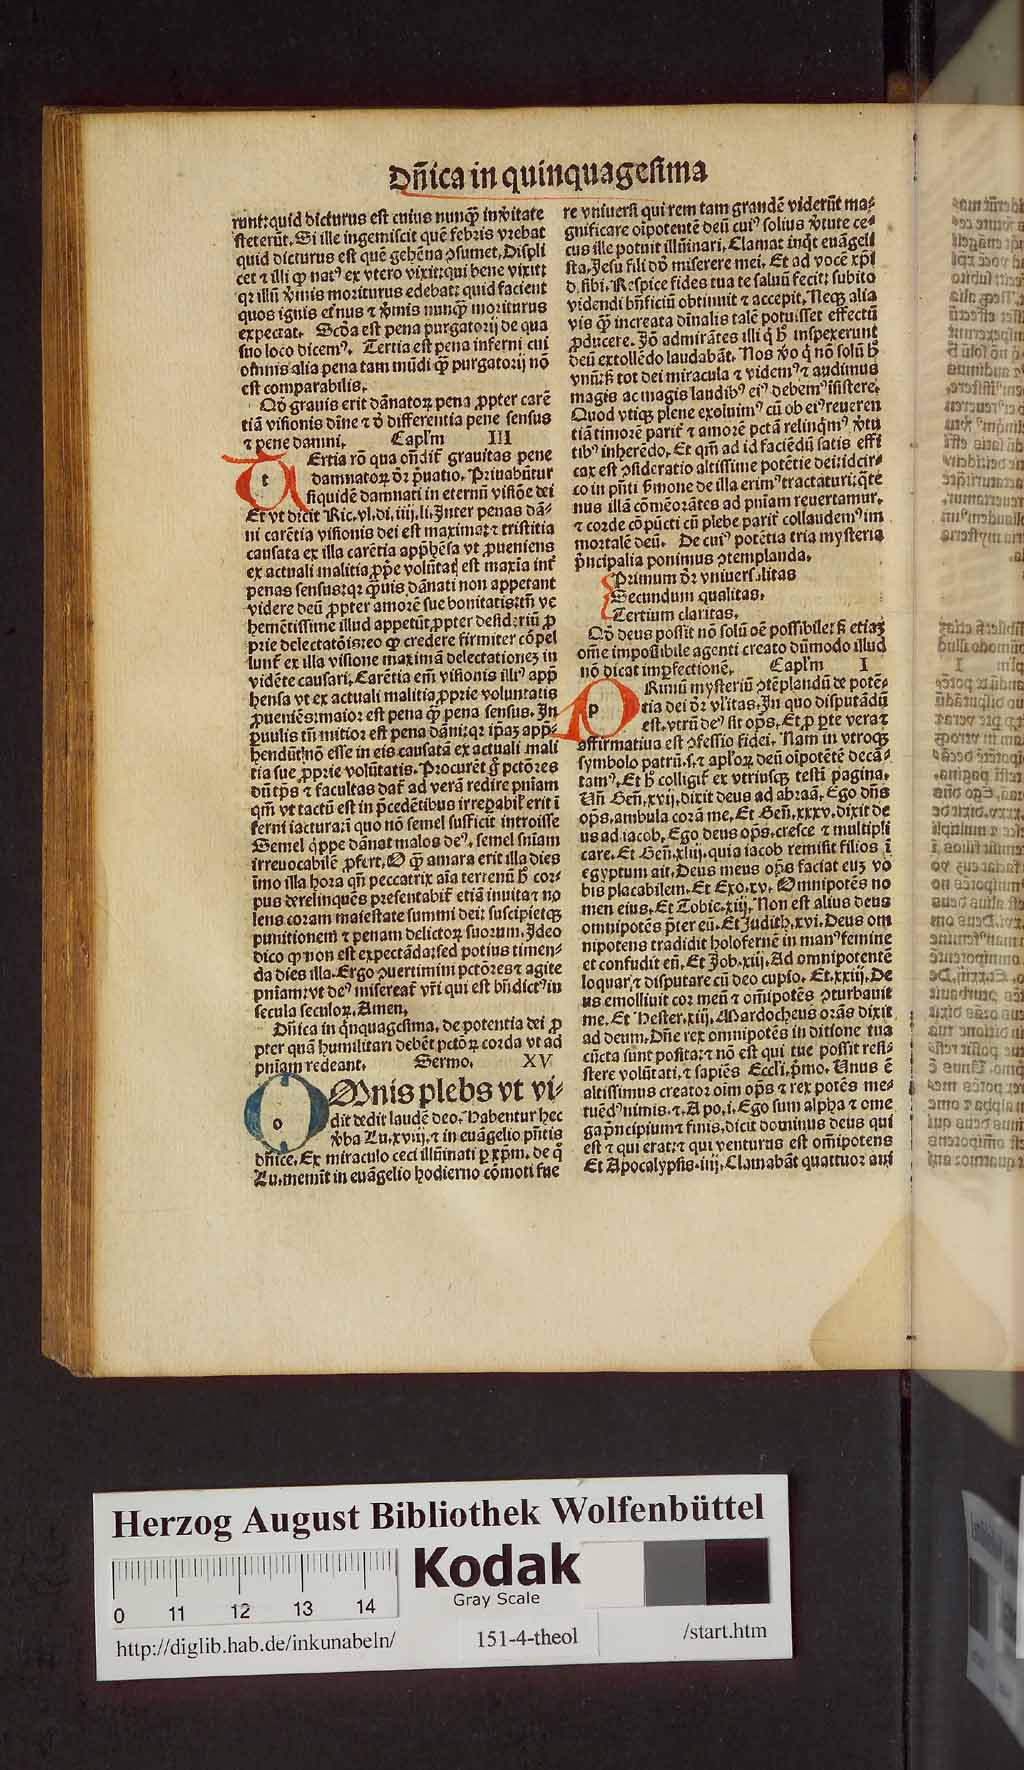 Dñica in quinquagesima
runt: quid dicturus est cuius nunq̃ in v̾itate
steterũt. Si ille ingemiscit quẽ febris vrebat
quid dicturus est quẽ gehẽna ꝯsumet. Displi
cet ⁊ illi ꝙ natꝰ ex vtero vixit: qui bene vixit
qꝛ illũ v̾mis moriturus edebat: quid facient
quos ignis et̾nus ⁊ v̾mis nunq̃ moriturus
expectat. Scḋa est pena purgatorij de qua
suo loco dicemꝰ. Tertia est pena inferni cui
oĩnis alia pena tam mũdi q̃ purgatorij nõ
est comparabilis.
Qḋ grauis erit dãnatoꝝ pena ꝓpter carẽ
tiã visionis dĩne ⁊ ḋ differentia pene sensus
⁊ pene damni. Capl'm III
Tertia rõ qua oñdit̃ grauitas pene
damnatoꝝ ḋr p̃uatio. Priuabũtur
siquidẽ damnati in eternũ visiõe dei
Et vt dicit Ric. vl. di. iiij. li. Inter penas dã-
ni carẽtia visionis dei est maxima: ⁊ tristitia
causata ex illa carẽtia app̃hẽsa vt ꝓueniens
ex actuali malitia ꝓp̃e volũtat̃ est maxĩa int̃
penas sensus: qꝛ q̃uis dãnati non appetant
videre deũ ꝓpter amorẽ sue bonitatis: tñ ve
hemẽtissime illud appetũt ꝓpter desid̾riũ ꝓ
prie delectatõis: eo ꝙ credere firmiter cõpel
lunt̃ ex illa visione maximã delectationez in
vidẽte causari. Carẽtia em̃ visionis illiꝰ app̃
hensa vt ex actuali malitia ꝓprie voluntatis
ꝓueniẽs: maior est pena q̃ pena sensus. In
puulis tñ mitior est pena dãni: qꝛ ip̃az app̃-
hendũt: nõ esse in eis causatã ex actuali mali
tia sue ꝓprie volũtatis. Procurẽt g̾ pctõres
dũ tp̃s ⁊ facultas dat̃ ad verã redire pñiam
qm̃ vt tactũ est in p̃cedẽtibus irrepabil' erit ĩ
ferni iactura: ĩ quo nõ semel sufficit introisse
Semel q̃ppe dãnat malos deꝰ. semel sñiam
irreuocabilẽ ꝓfert. O q̃ amara erit illa dies
ĩmo illa hora qñ peccatrix aĩa terrenũ h̾ cor-
pus derelinquẽs presentabit̃ etiã inuita ⁊ no
lens coram maiestate summi dei: suscipietqꝫ
punitionem ⁊ penam delictoꝝ suorum. Ideo
dico ꝙ non est expectãda: sed potius timen-
da dies illa. Ergo ꝯuertimini pctõres ⁊ agite
pñiam: vt deꝰ misereat̃ vr̃i qui est bñdictꝰ in
secula seculoꝝ. Amen.
Dñica in q̃nquagesima. de potentia dei ꝓ
pter quã humiliari debẽt pctõꝝ corda vt ad
pñiam redeant. Sermo. XV
OMnis plebs vt vi-
dit dedit laudẽ deo. Habentur hec
v̾ba Lu. xviij. ⁊ in euãgelio pñtis
dñice. Ex miraculo ceci illũinati ꝑ xp̃m. de q̊
Lu. memĩt in euãgelio hodierno cõmoti fue
re vniuersi qui rem tam grandẽ viderũt ma-
gnificare oĩpotentẽ deũ cuiꝰ solius v̾tute ce-
cus ille potuit illũinari. Clamat inq̃t euãgeli
sta. Jesu fili dd̾ miserere mei. Et ad vocẽ xp̃i
d. sibi. Respice fides tua te saluũ fecit: subito
videndi bñficiũ obtinuit ⁊ accepit. Neqꝫ alia
vis q̃ increata dĩnalis talẽ potuisset effectũ
ꝓducere. Iõ admirãtes illi q̃ h̾ inspexerunt
deũ extollẽdo laudabãt. Nos v̾o q̃ nõ solũ h̾
vnũ: ß tot dei miracula ⁊ videmꝰ ⁊ audimus
magis ac magis laudibꝰ eiꝰ debemꝰ ĩsistere.
Quod vtiqꝫ plene exoluimꝰ cũ ob eiꝰ reueren
tiã timorẽ parit̃ ⁊ amorẽ pctã relinq̃mꝰ v̾tu
tibꝰ inherẽdo. Et qm̃ ad id faciẽdũ satis effi
cax est ꝯsideratio altissime potẽtie dei: idcir-
co in pñti s̾mone de illa erimꝰ tractaturi: q̃te
nus illã cõmeorãtes ad pñiam reuertamur.
⁊ corde cõpũcti cũ plebe parit̃ collaudemꝰ im
mortalẽ deũ. De cuiꝰ potẽtia tria mysteria
p̃ncipalia ponimus ꝯtemplanda.
Primum ḋr vniuersalitas
Secundum qualitas.
Tertium claritas.
Qḋ deus possit nõ solũ oẽ possibile: ß etiaz
om̃e impossibile agenti creato dũmodo illud
nõ dicat imꝑfectionẽ. Capl'm I
PRimũ mysteriũ ꝯtẽplandũ de potẽ-
tia dei ḋr vl'itas. In quo disputãdũ
est. vtrũ deꝰ sit op̃s. Et ꝓ ꝑte vera ⁊
affirmatiua est ꝯfessio fidei. Nam in vtroqꝫ
symbolo patrũ. s. ⁊ apl'oꝝ deũ oĩpotẽtẽ decã-
tamꝰ. Et h̾ colligit̃ ex vtriusqꝫ testĩ pagina.
Vñ Geñ. xvij. dixit deus ad abraã. Ego dñs
op̃s. ambula corã me. Et Geñ. xxxv. dixit de
us ad iacob. Ego deus op̃s. cresce ⁊ multipli
care. Et Geñ. xliij. quia iacob remisit filios ĩ
egyptum ait. Deus meus op̃s faciat euz vo
bis placabilem. Et Exo. xv. Omnipotẽs no
men eius. Et Tobie. xiij. Non est alius deus
omnipotẽs p̃ter eũ. Et Judith. xvi. Deus om
nipotens tradidit holofernẽ in manꝰ femine
et confudit eũ. Et Job. xiij. Ad omnipotentẽ
loquar: ⁊ disputare cũ deo cupio. Et. xxiij. De
us emolliuit cor meũ ⁊ om̃ipotẽs ꝯturbauit
me. Et Hester. xiij. Mardocheus orãs dixit
ad deum. Dñe rex omnipotẽs in ditione tua
cũcta sunt posita: ⁊ nõ est qui tue possit resi-
stere volũtati. ⁊ sapiẽs Eccl'i. p̃mo. Unus ẽ
altissimus creator oĩm op̃s ⁊ rex potẽs me-
tuẽdꝰ nimis. ⁊. Apo. i. Ego sum alpha ⁊ ome
ga p̃ncipium ⁊ finis. dicit dominus deus qui
est ⁊ qui erat: ⁊ qui venturus est om̃ipotens
Et Apocalypsis. iiij. Clamabãt quattuor ani
Herzog August Bibliothek Wolfenbüttel
Kodak
Gray Scale
0 11 12 13 14
http://diglib.hab.de/inkunabeln/ 151-4-theol /start.htm